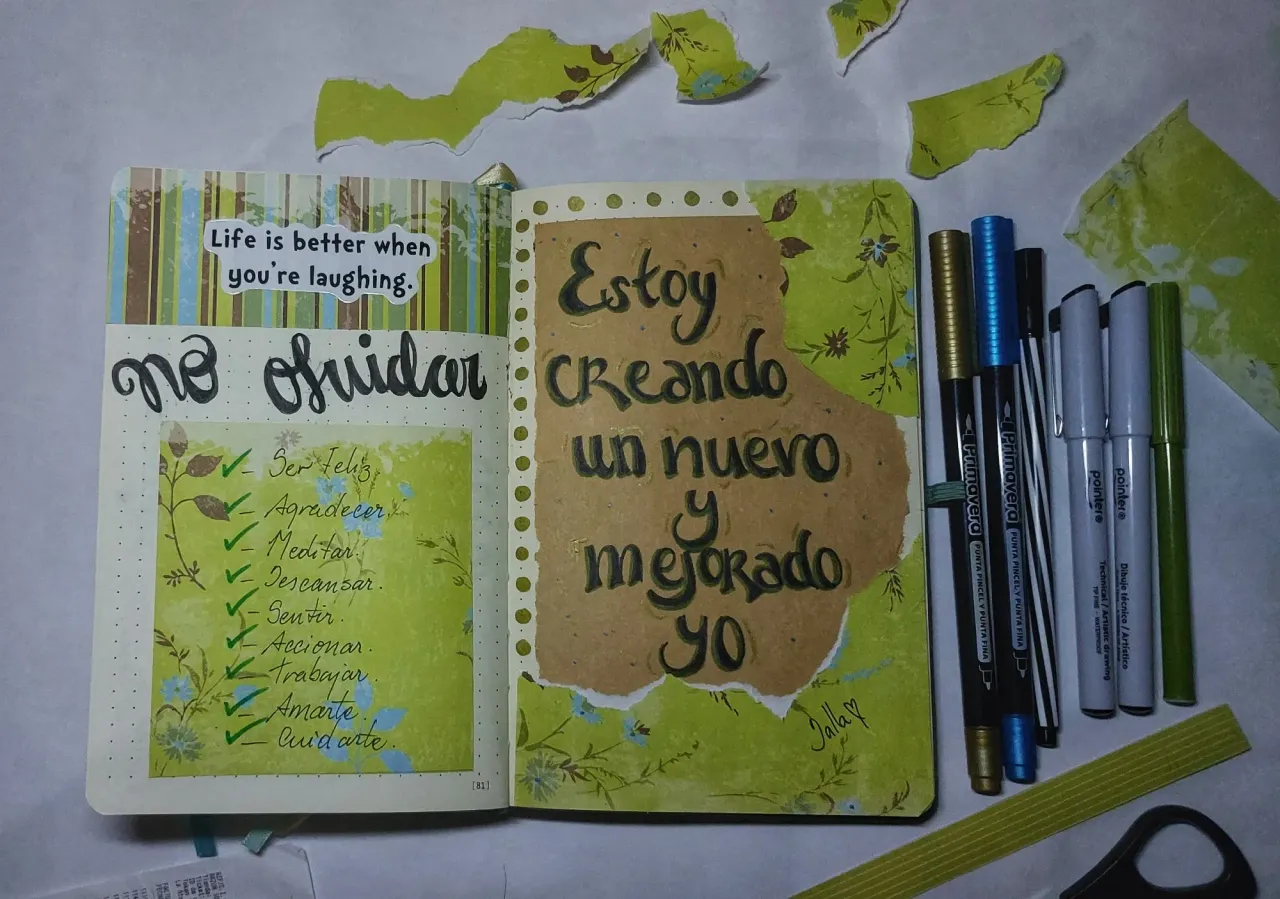 Life is better when
you're laughing.
no olvidar
- Ser Feliz.
- Agradecer.
- Meditar.
- Descansar.
- Sentir.
- Accionar.
- Trabajar.
- Amarte.
- Cuidarte.
[81]
Estoy
creando
un nuevo
y
mejorado
yo
Jalla
Primavera
PUNTA PINCEL Y PUNTA FINA
Primavera
PUNTA PINCEL Y PUNTA FINA
pointer®
Technical / Artistic drawing
pointer®
Dibujo técnico / Artístico